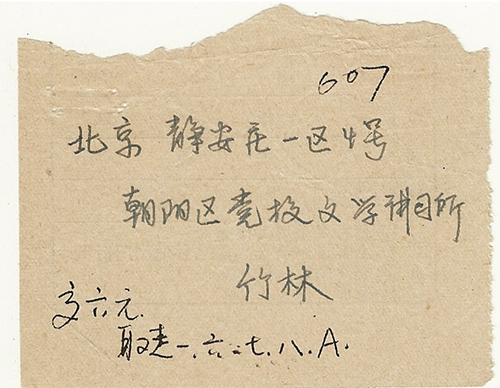 607
北京 静安庄一区4号
朝阳区党校文学讲习所
竹林
交六元.
取走一.六.七.八.A.